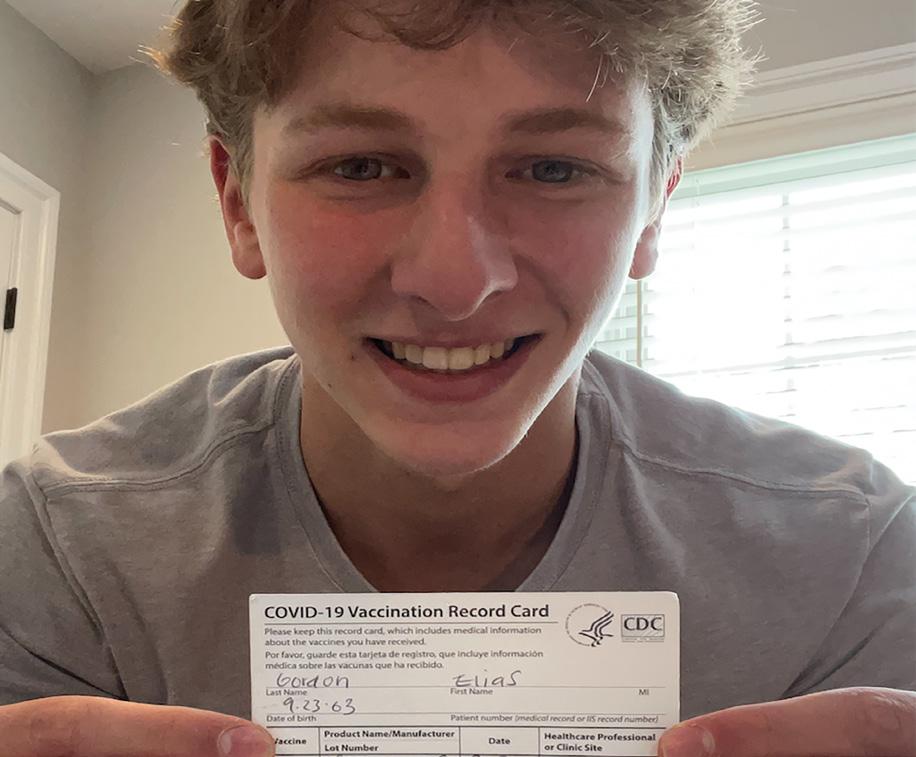 COVID-19 Vaccination Record Card
Please keep this record card, which includes medical information
about the vaccines you have received.
Por favor, guarde esta tarjeta de registro, que incluye información
médica sobre las vacunas que ha recibido.
CDC
Gordon Elias
Last Name First Name MI
9.23.63
Date of birth Patient number (medical record or IIS record number)
Vaccine Product Name/Manufacturer Date Healthcare Professional
Lot Number or Clinic Site